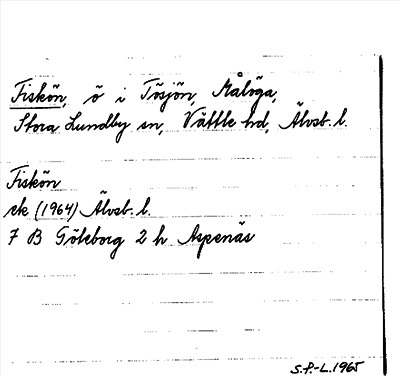 Fiskön, ö i Tösjön, Målöga,
Stora Lundby sn, Vättle hd, Älvsb. l.
Fiskön
ek (1964) Älvsb. l.
7 B Göteborg 2 h Aspenäs
S.P.-L. 1965